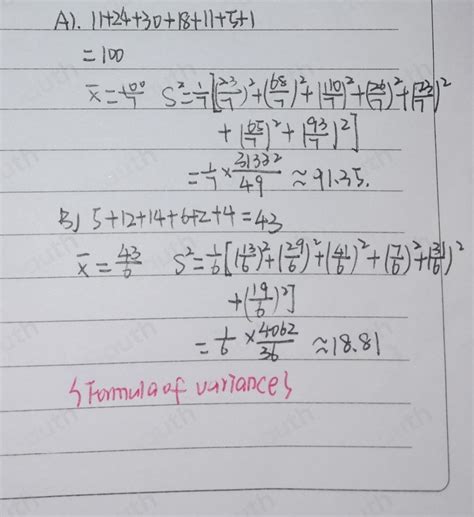 A). 11+24+30+18+11+5+1
=100
x̄=100/7 S²=1/7[(23/7)²+(68/7)²+(110/7)²+(26/7)²+(23/7)²
+(65/7)²+(93/7)²]
=1/7×31332/49≈91.35.
B) 5+12+14+6+2+4=43
x̄=43/6 S²=1/6[(13/6)²+(29/6)²+(41/6)²+(7/6)²+(31/6)²
+(19/6)²]
=1/6×4062/36≈18.81
{Formula of variance}